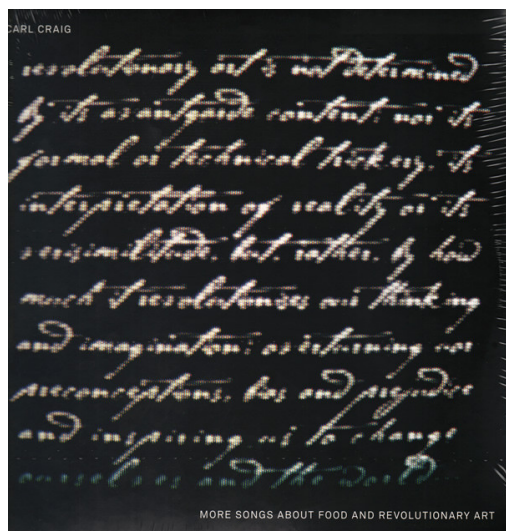 CARL CRAIG
revolutionary art is not determined
by its avantgarde content, nor its
formal or technical trickery, its
interpretation of reality or its
verisimilitude, but, rather, by how
much it revolutionizes our thinking
and imagination; overturning our
preconceptions, bias and prejudice
and inspiring us to change
ourselves and the world
MORE SONGS ABOUT FOOD AND REVOLUTIONARY ART